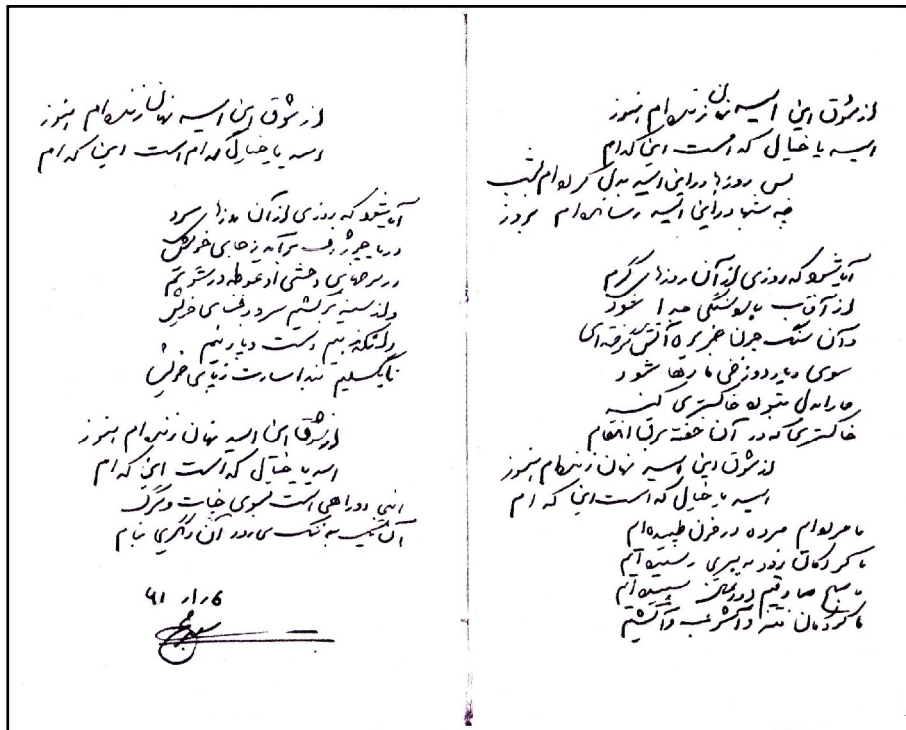 از شوق این امید نهان زنده ام هنوز
امید یا خیال کدامست این کدام
بس روزها در این امید بدل کرده ام بشب
چه شبها در این امید رسانده ام بروز
آیا شود که روزی از آن روزهای گرم
از آفتاب جدا شود
وآن سنگ چون جزیره آتش گرفته ای
سوی دیار دوزخی ما رها شود
ما را بدل بتوده خاکستری کند
خاکستری که در آن خفته برق انتقام
از شوق این امید نهان زنده ام هنوز
امید یا خیال که است این که ام
مرده در خون طپیده ایم
ما کودکان زود به پیری رسیده ایم
ما
ما کودکان فتنه و آشوب و آتشیم
از شوق این امید نهان زنده ام هنوز
امید یا خیال کدام است این کدام
آیا شود که روزی از آن روزهای سرد
دریا چو ژرف برآید ز جای خویش
در موجهای وحشی او غوطه ور شویم
وز سینه برکشیم سرود فنای خویش
دست و پا زنیم
تا بگسلیم بند اسارت ز پای خویش
از شوق این امید نهان زنده ام هنوز
امید یا خیال که است این که ام
دوراهی است بسوی حیات و مرگ
آن یک به ننگ می رود آن دگری بنام
۶۱ ر۱ ر۶